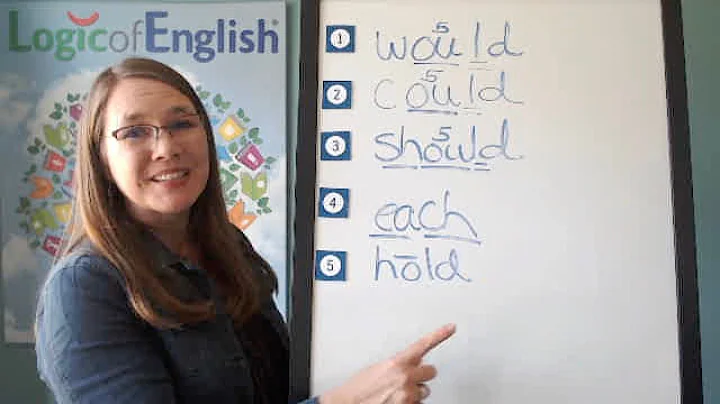 Logic of English®
1 would
5
2 could
5
3 should
5
4 each
5 hōld